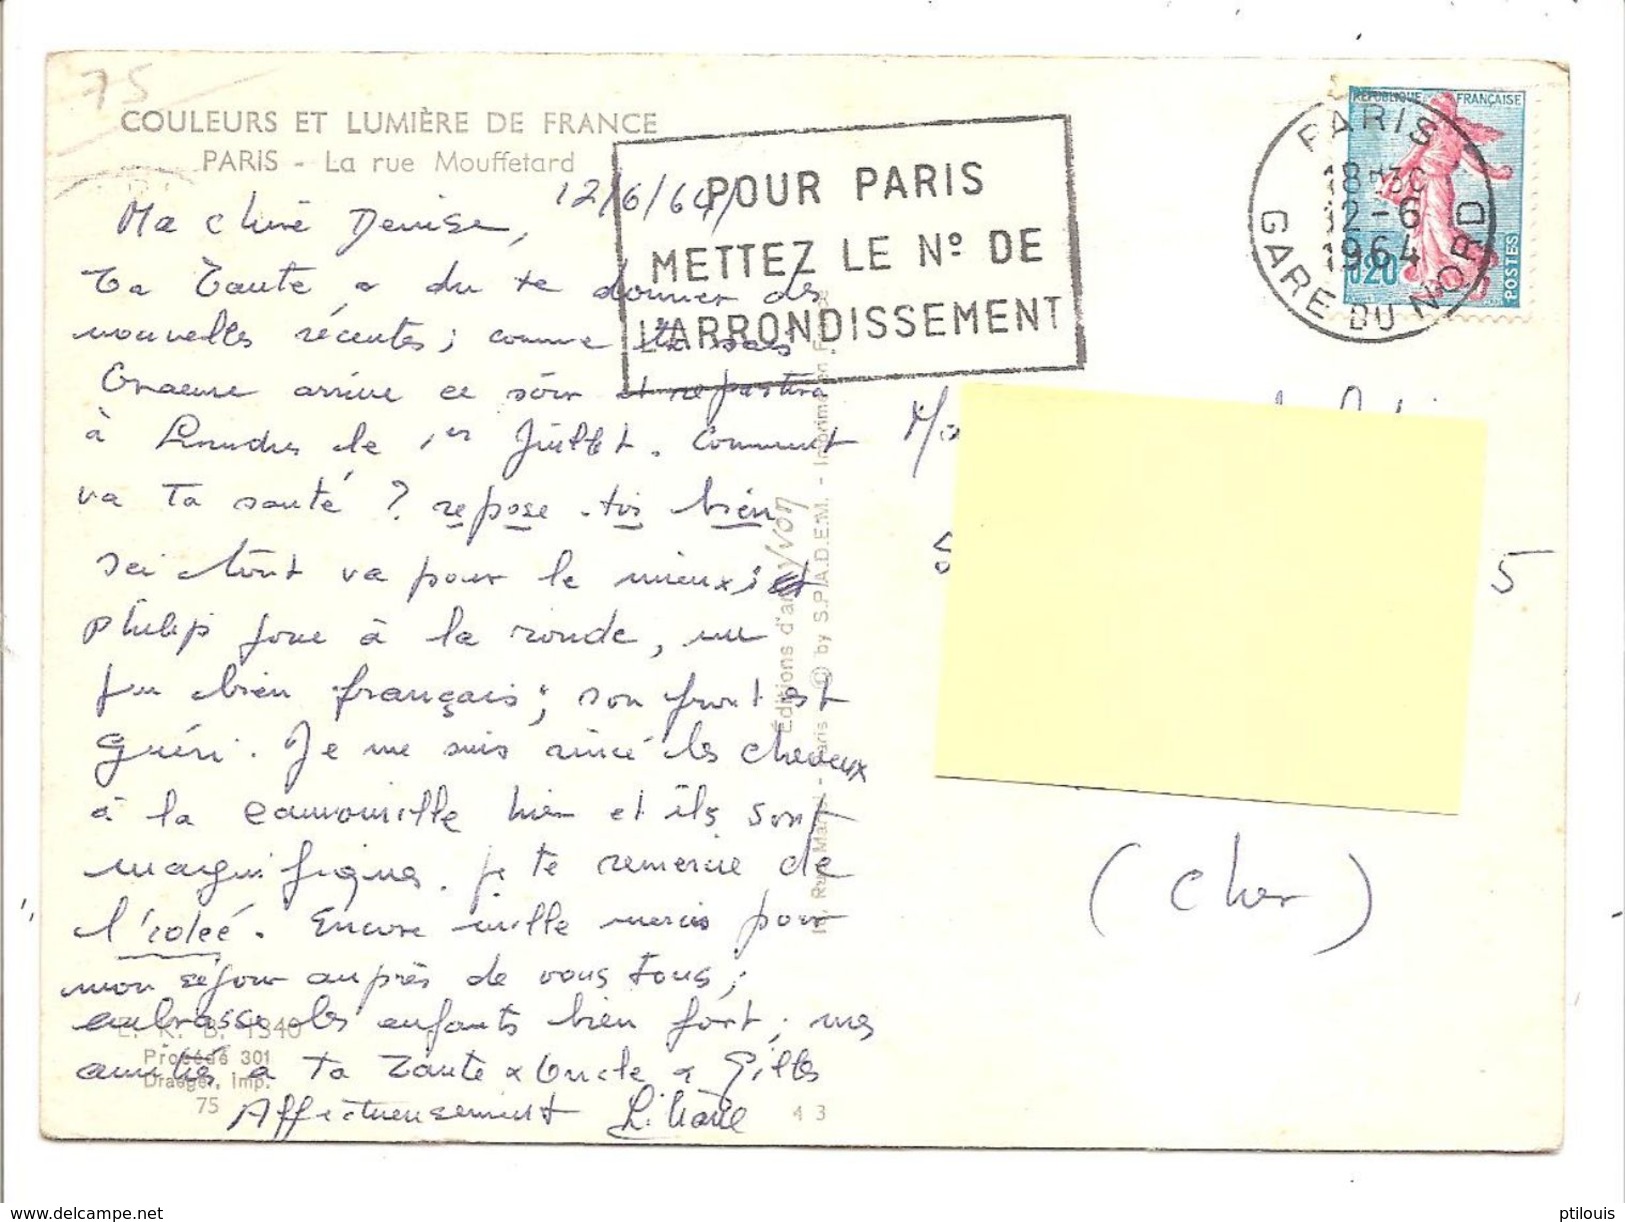 75
COULEURS ET LUMIÈRE DE FRANCE
PARIS - La rue Mouffetard
12/6/64
POUR PARIS
METTEZ LE Nº DE
L'ARRONDISSEMENT
RÉPUBLIQUE FRANÇAISE
0,20
POSTES
PARIS
18H30
12-6
1964
GARE DU NORD
Ma chère Denise,
Ta Tante a du te donner des
nouvelles récentes; comme tu sais
arrive ce soir et repartira
à Londres le 1er Juillet. Comment
va Ta santé ? repose-toi bien
Ici tout va pour le mieux; et
Philip joue à la ronde, un
jeu bien français; son front est
guéri. Je me suis rincé les cheveux
à la camomille hier et ils sont
magnifiques. je te remercie de
l'idée. Encore mille mercis pour
mon séjour auprès de vous tous;
embrasse les enfants bien fort; mes
amitiés à Ta Tante & Oncle & Gilles
Affectueusement Liliane
Éditions d'art yvon
Paris - © by S.P.A.D.E.M. - Imprimé en France
L. K. B. 1340
Procédé 301
Draeger, imp.
75
43
5
(Cher)
www.delcampe.net
ptilouis